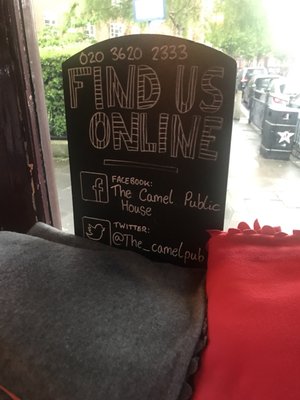 020 3620 2333
FIND US
ONLINE
FACEBOOK:
The Camel Public
House
TWITTER:
@The_camelpub